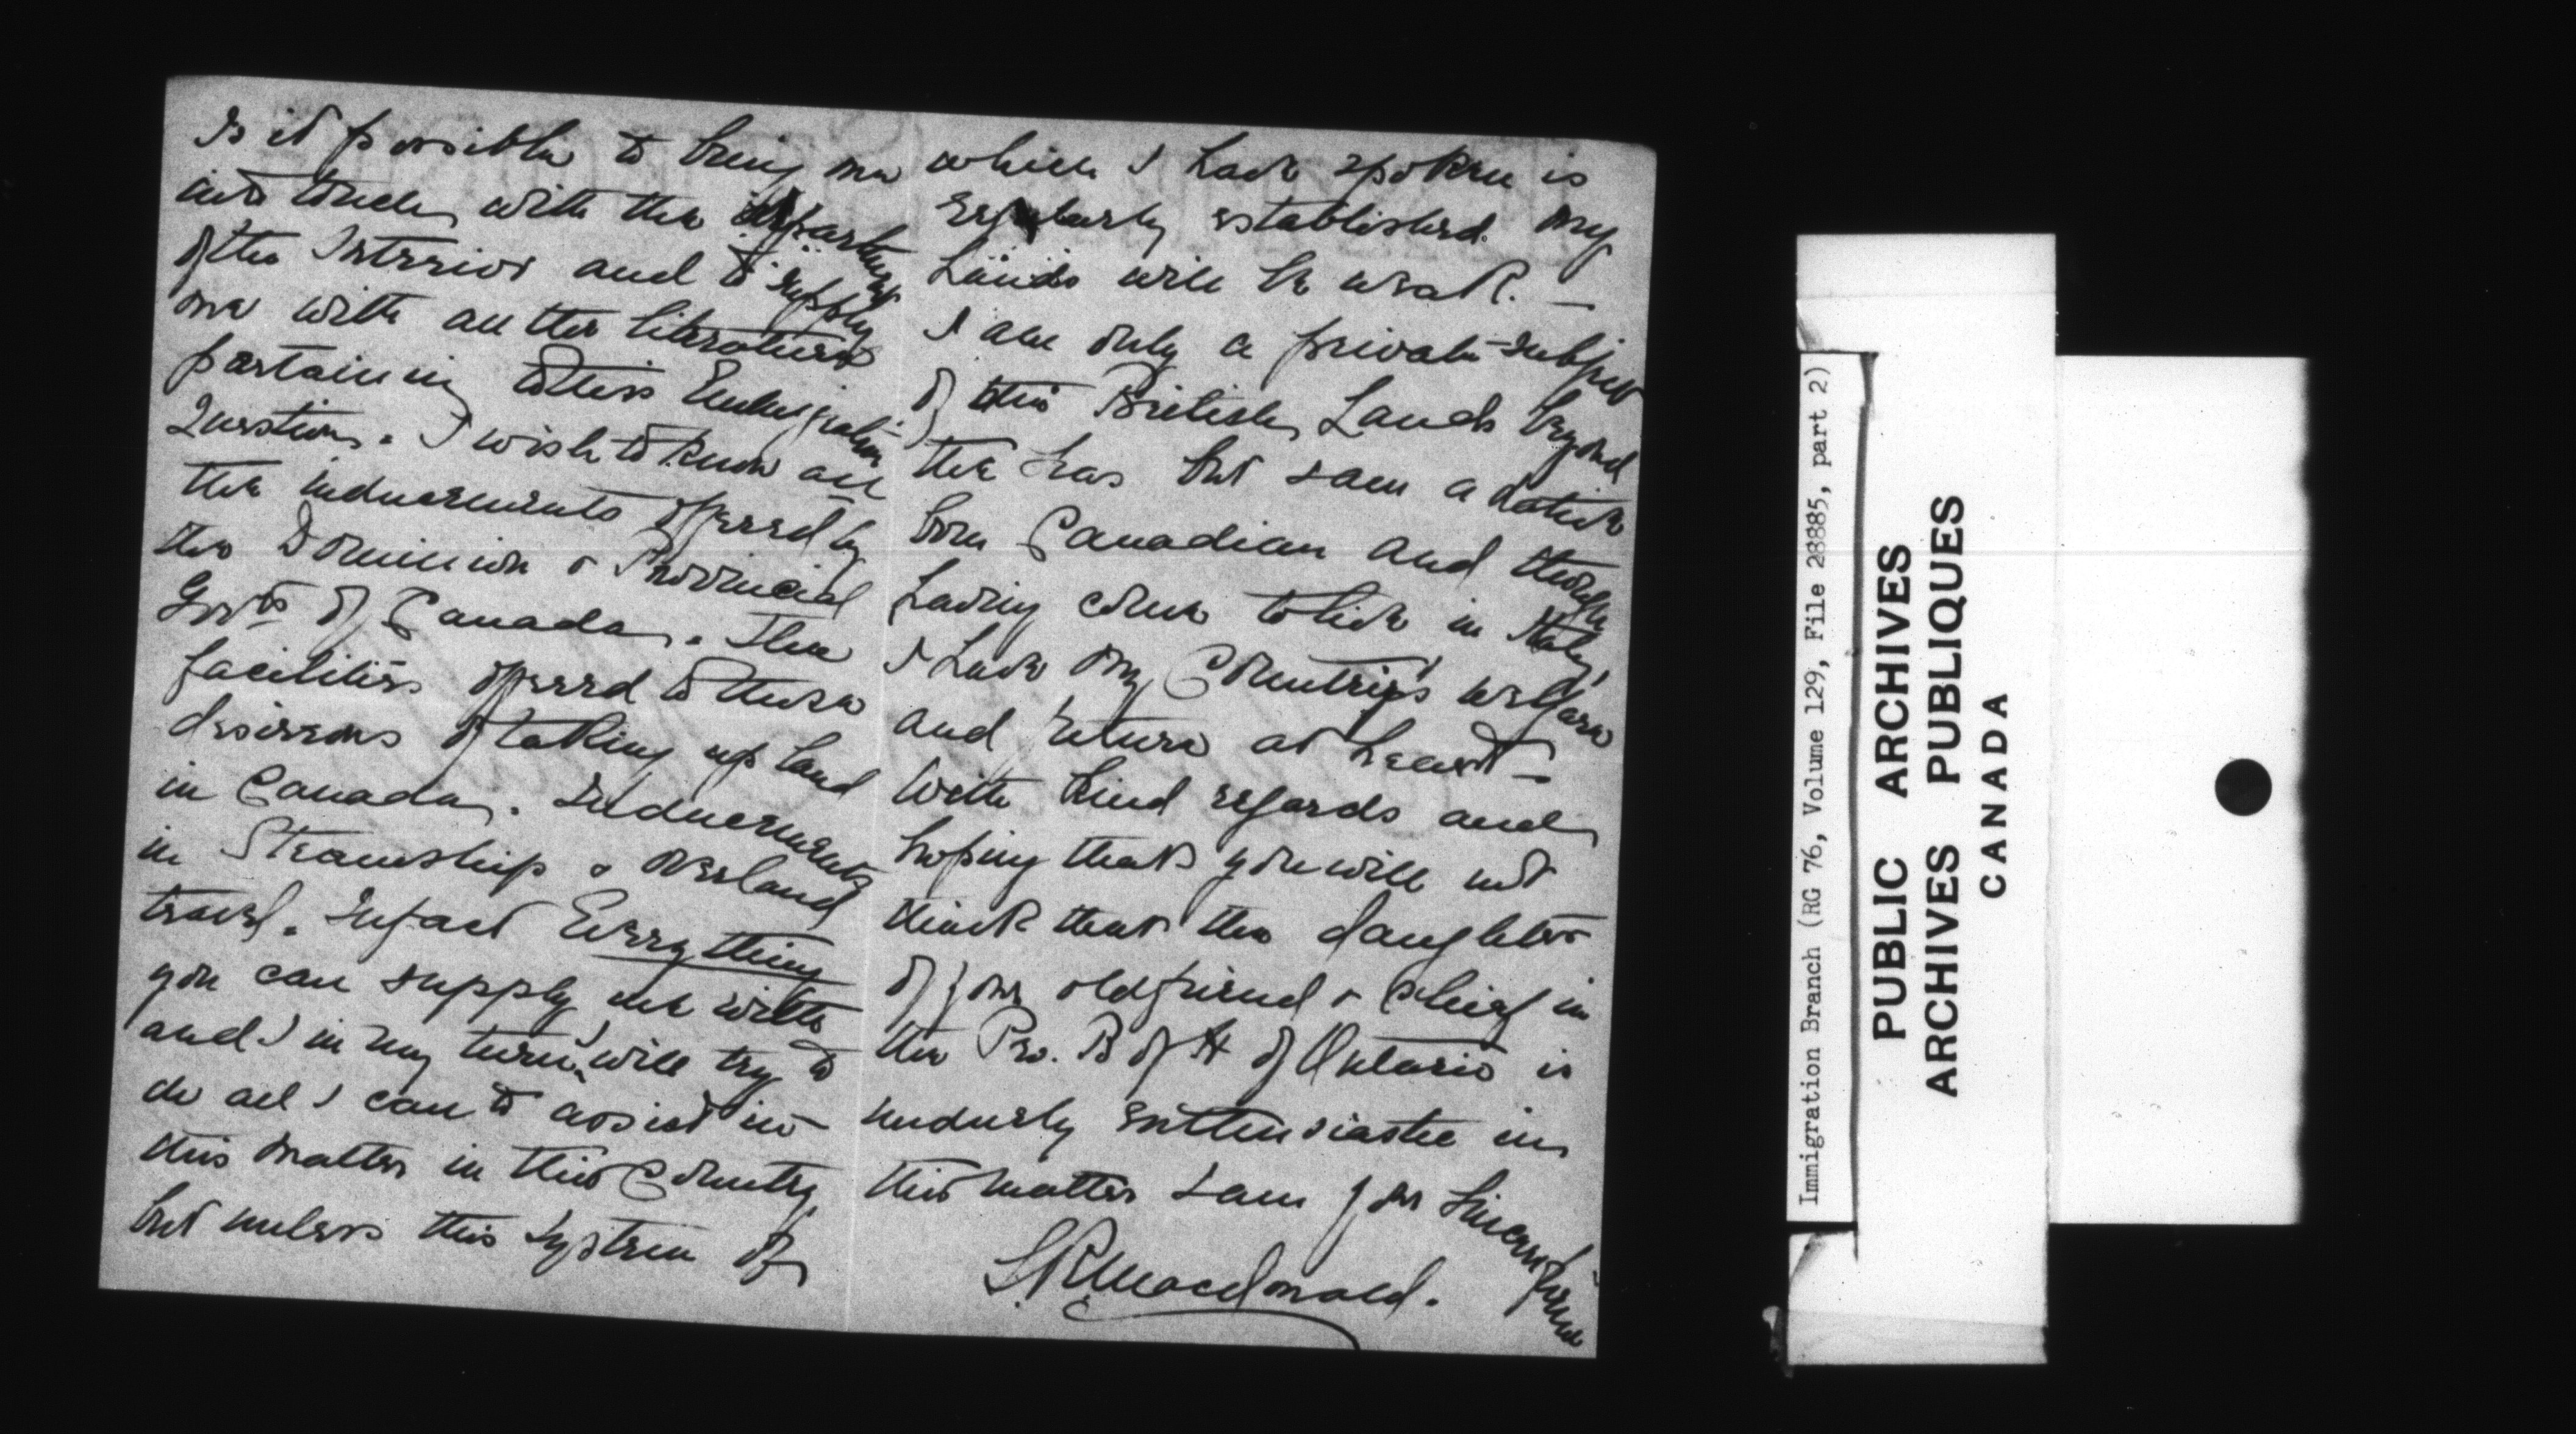 Is it possible to bring me
into touch with the department
of the Interior and to supply
me with all the literature
pertaining to this Emigration
Question. I wish to know all
the inducements offered by
the Dominion & Provincial
Govts of Canada. The
facilities offered to those
desireous of taking up land
in Canada. Inducements
in Steamship & overland
travel. In fact Everything
you can supply me with
and I in my turn, will try to
do all I can to assist in
this matter in this Country,
but unless this system of
which I have spoken is
regularly established my
hands will be weak. —
I am only a private subject
of the British Lands beyond
the seas but I am a native
born Canadian and though
having come to live in Italy,
I have my Country's welfare
and future at heart —
With kind regards and
hoping that you will not
think that the daughter
of your old friend & Chief in
the Pro. B of H of Ontario is
unduely enthusiastic in
this matter I am your sincere friend
Macdonald.
Immigration Branch (RG 76, Volume 129, File 28885, part 2)
PUBLIC ARCHIVES
ARCHIVES PUBLIQUES
CANADA